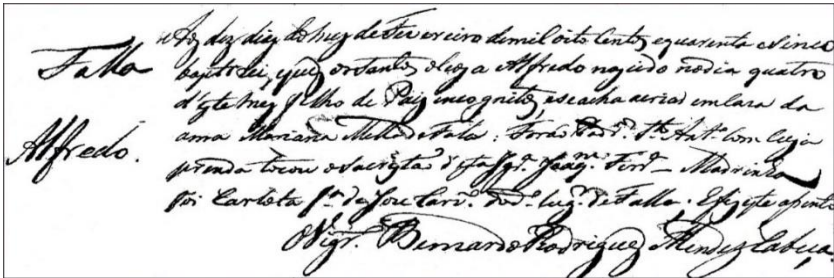 Aos dez dias do mez de Fevereiro de mil oito centos e quarenta e sinco
Falla
baptisei, e puz os santos oleos a Alfredo nascido no dia quatro
d'este mez filho de Pais incognitos, e se acha a criar em casa da
Alfredo.
ama Marianna de Falla: Forão Pad.º S.to Ant.º com cuja
prenda tocou o sacristão d'esta Igr.ª Joaq.m Ferr.ª Madrinha
foi Carlota f.ª de Jose do d.º lug.r de Falla. E fiz este assento
O Vigr.º Bernardo Rodrigues Mendes Cabeça.